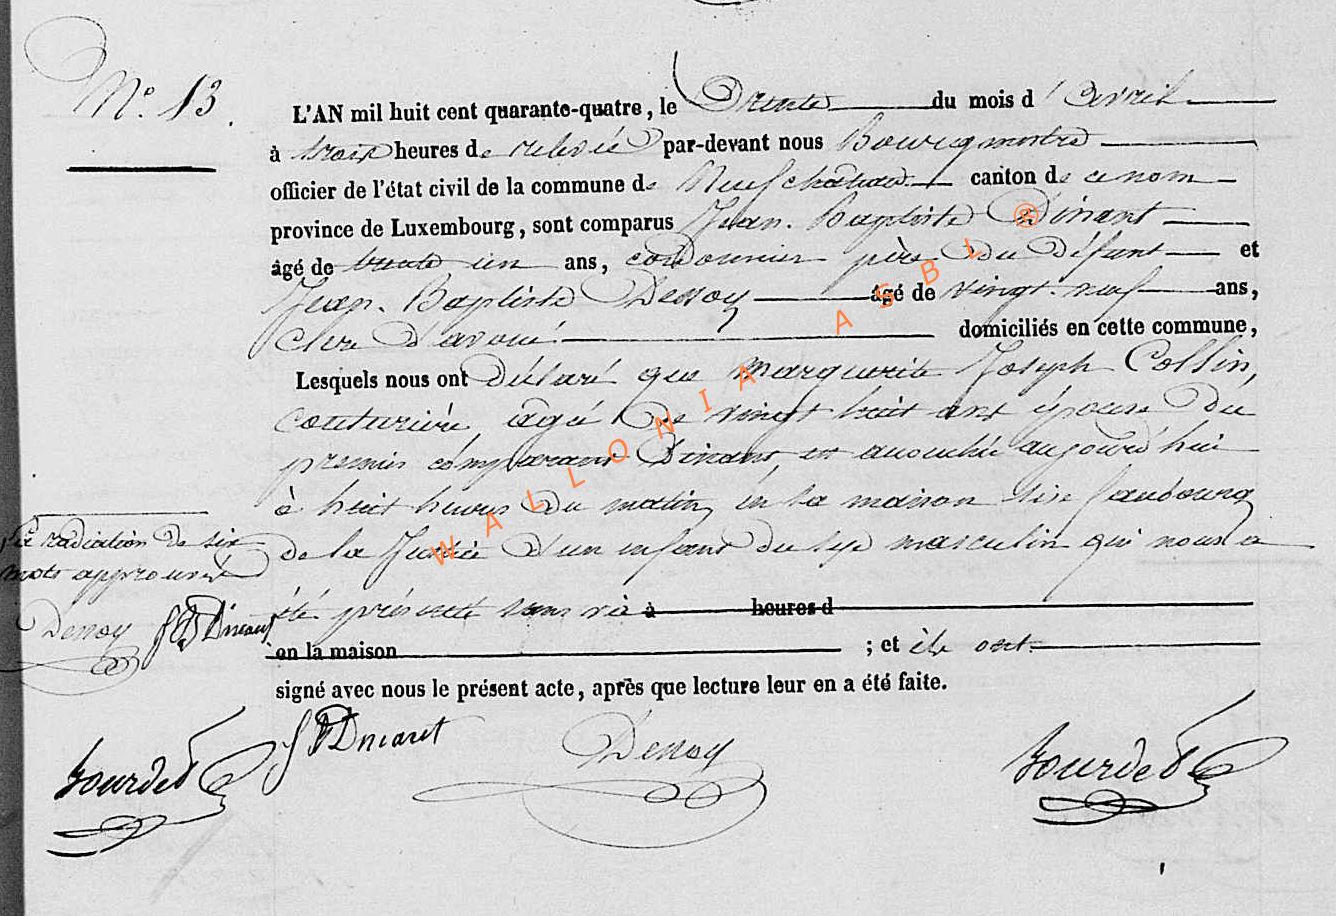 N° 13.
L'AN mil huit cent quarante-quatre, le Trente du mois d'avril
à trois heures de relevée par-devant nous Bourgmestre
officier de l'état civil de la commune de Neufchateau canton de ce nom
province de Luxembourg, sont comparus Jean-Baptiste Dinant
âgé de trente un ans, cordonnier père du défunt et
Jean-Baptiste Dessoy âgé de vingt-neuf ans,
Clerc d'avoué domiciliés en cette commune,
Lesquels nous ont déclaré que Marguerite Joseph Collin,
couturière, agé de vingt huit ans épouse du
premier comparant Dinant, est accouchée aujourd'hui
à huit heures du matin, en sa maison sise faubourg
de la Justice d'un enfant du sexe masculin qui nous a
été présenté sans vie à heures d
en la maison ; et ils ont
signé avec nous le présent acte, après que lecture leur en a été faite.
La radiation de six
mots approuvée
Dessoy JB Dinant
Bourdet JB Dinant Dessoy Bourdet
WALLONIA ASBL ®